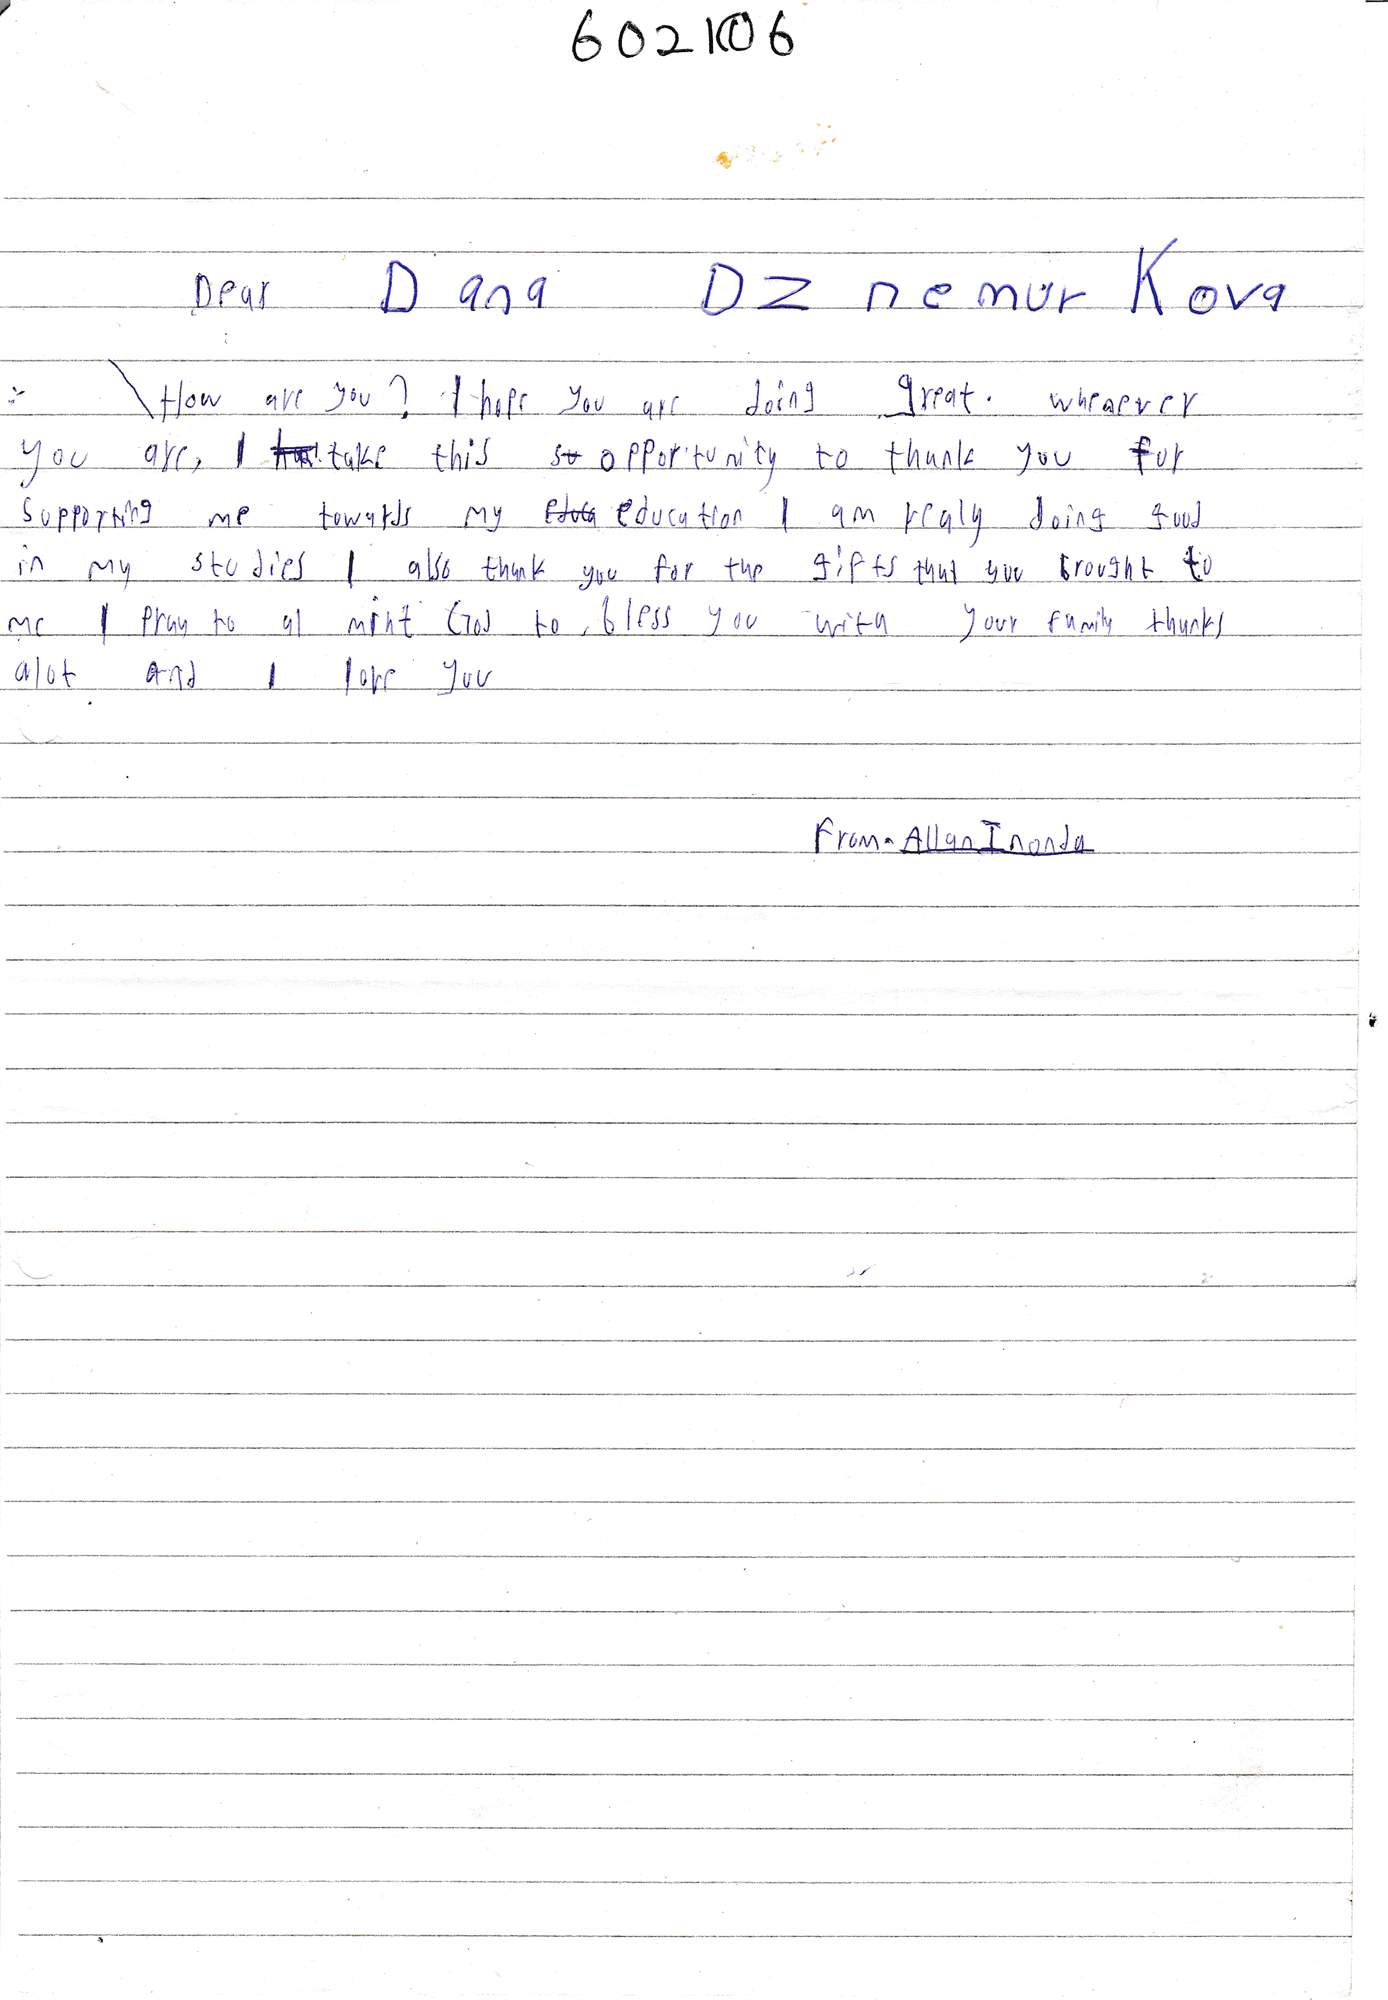 602106
Dear Dana Dz nemur Kova
How are you? I hope you are doing great. wheaever
you are, I take this opportunity to thank you for
supporting me towards my education I am realy doing good
in my studies I also thank you for the gifts that you brought to
me I pray to al miht God to bless you with your family thanks
alot and I love you
From. Allan Inonda